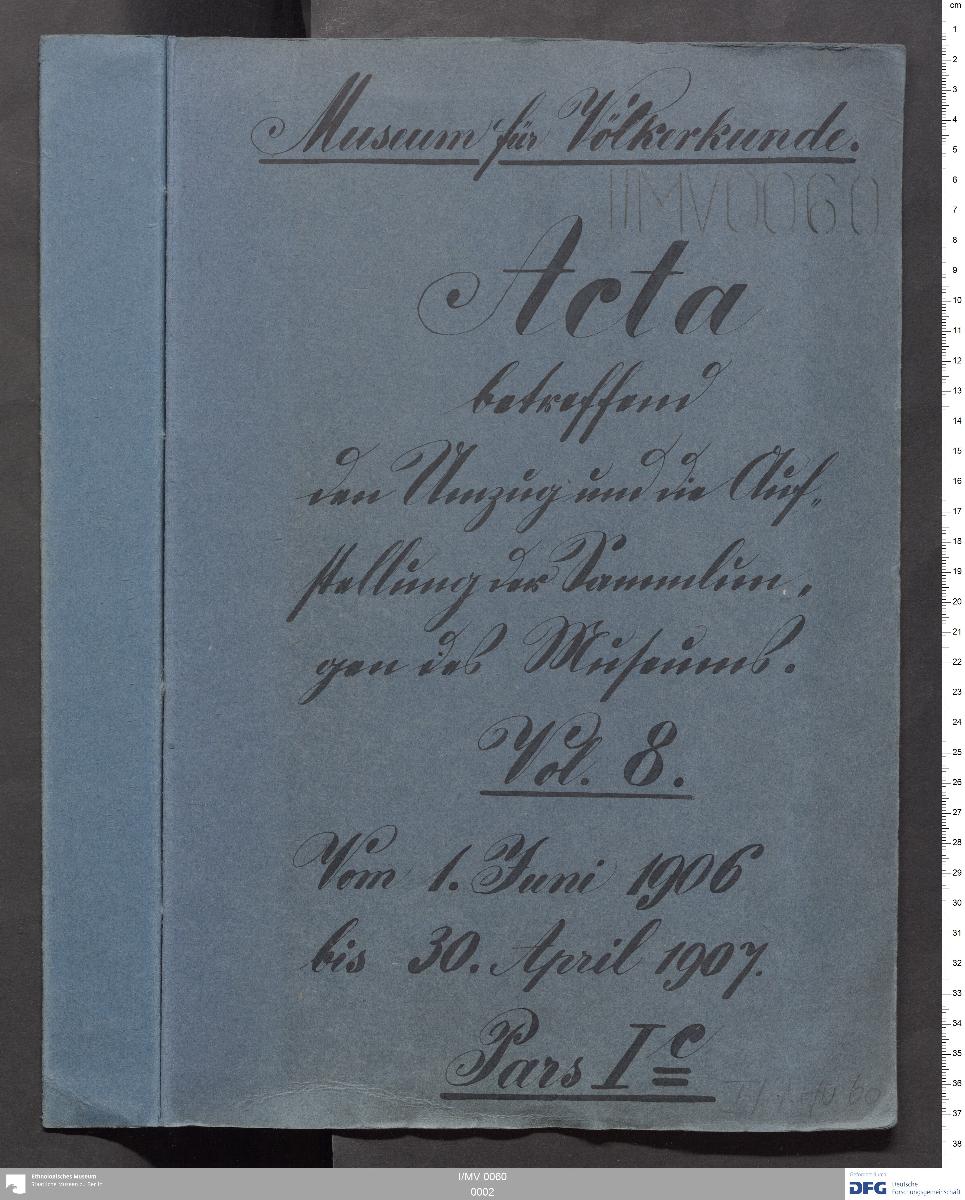 Museum für Völkerkunde.
IIMV0060
Acta
betreffend
den Umzug und die Auf„
stellung der Sammlun„
gen des Museums.
Vol. 8.
Vom 1. Juni 1906
bis 30. April 1907.
Pars I c
cm
1
2
3
4
5
6
7
8
9
10
11
12
13
14
15
16
17
18
19
20
21
22
23
24
25
26
27
28
29
30
31
32
33
34
35
36
37
38
Ethnologisches Museum
Staatliche Museen zu Berlin
I/MV 0060
0002
Gefördert durch
DFG Deutsche
Forschungsgemeinschaft